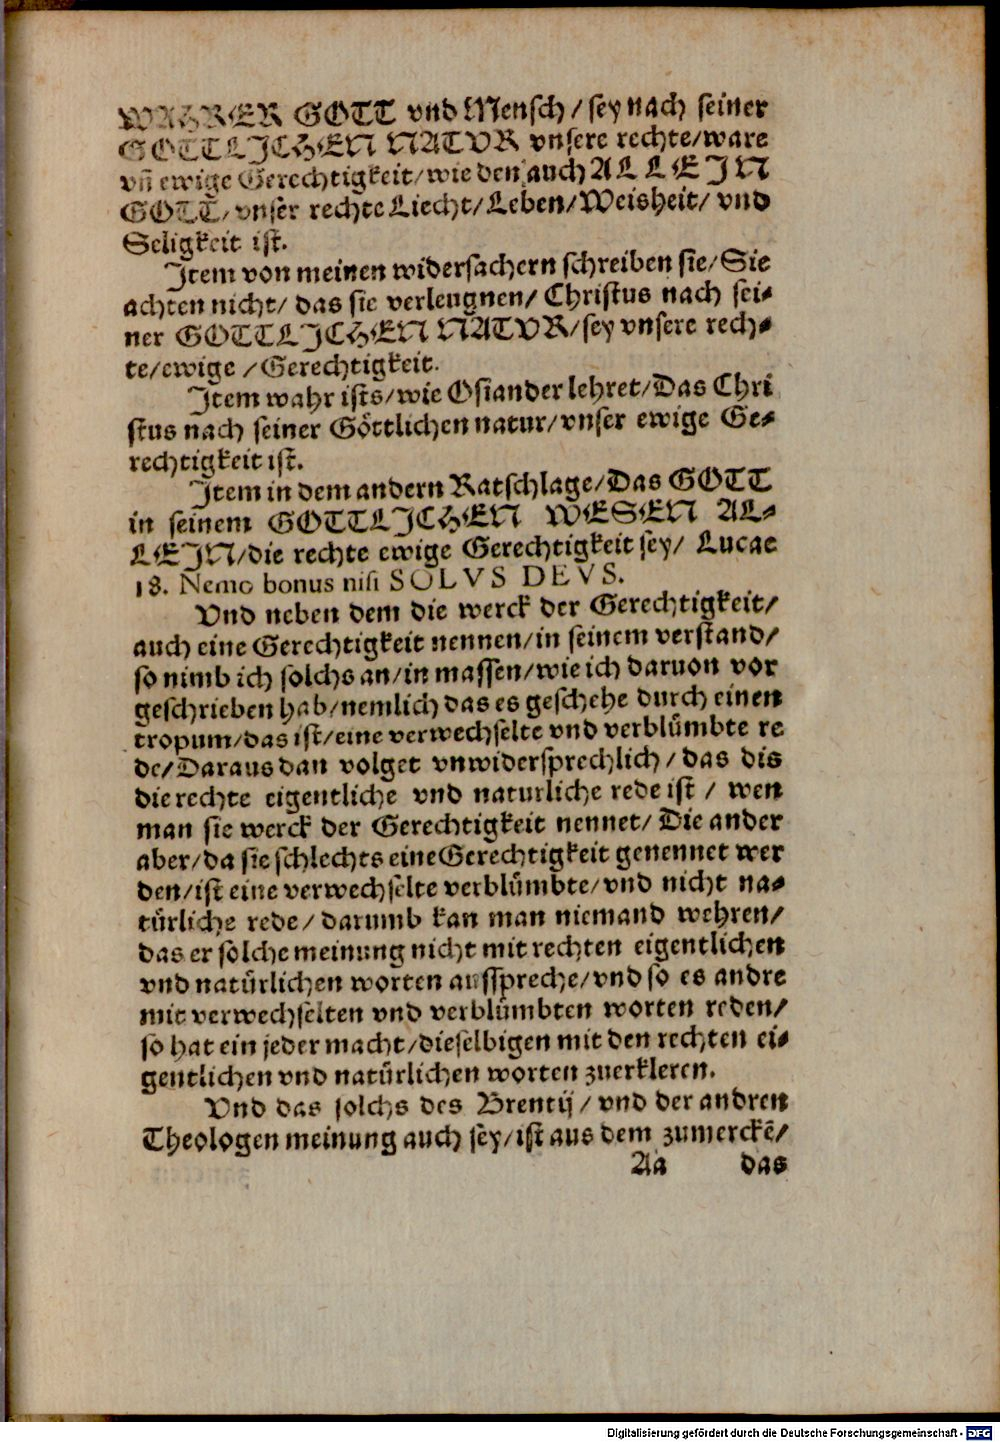 WAHRER GOTT vnd Mensch / sey nach seiner
GOTTLICHEN NATVR vnsere rechte/ware
vñ ewige Gerechtigkeit/wie den auch ALLEIN
GOTT/vnser rechte Liecht/Leben/Weisheit/ vnd
Seligkeit ist.
Item von meinen widersachern schreiben sie/Sie
achten nicht/ das sie verleugnen/ Christus nach sei-
ner GOTTLICHEN NATVR/sey vnsere rech-
te/ewige /Gerechtigkeit.
Item wahr ists/wie Osiander lehret/Das Chri
stus nach seiner Göttlichen natur/vnser ewige Ge-
rechtigkeit ist.
Item in dem andern Ratschlage/Das GOTT
in seinem GOTTLICHEN WESEN AL-
LEIN/die rechte ewige Gerechtigkeit sey/ Lucae
18. Nemo bonus nisi SOLVS DEVS.
Vnd neben dem die werck der Gerechtigkeit/
auch eine Gerechtigkeit nennen/in seinem verstand/
so nimb ich solchs an/in massen/wie ich daruon vor
geschrieben hab/nemlich das es geschehe durch einen
tropum/das ist/eine verwechselte vnd verblůmbte re
de/Daraus dan volget vnwidersprechlich/das dis
die rechte eigentliche vnd naturliche rede ist / wen
man sie werck der Gerechtigkeit nennet/Die ander
aber/da sie schlechts eine Gerechtigkeit genennet wer
den/ist eine verwechselte verblůmbte/vnd nicht na-
türliche rede/darumb kan man niemand wehren/
das er solche meinung nicht mit rechten eigentlichen
vnd natůrlichen worten ausspreche/vnd so es andre
mit verwechselten vnd verblůmbten worten reden/
so hat ein jeder macht/dieselbigen mit den rechten ei-
gentlichen vnd natůrlichen worten zuerkleren.
Vnd das solchs des Brentij/vnd der andren
Theologen meinung auch sey/ist aus dem zumerckē/
Aa das
Digitalisierung gefördert durch die Deutsche Forschungsgemeinschaft - DFG